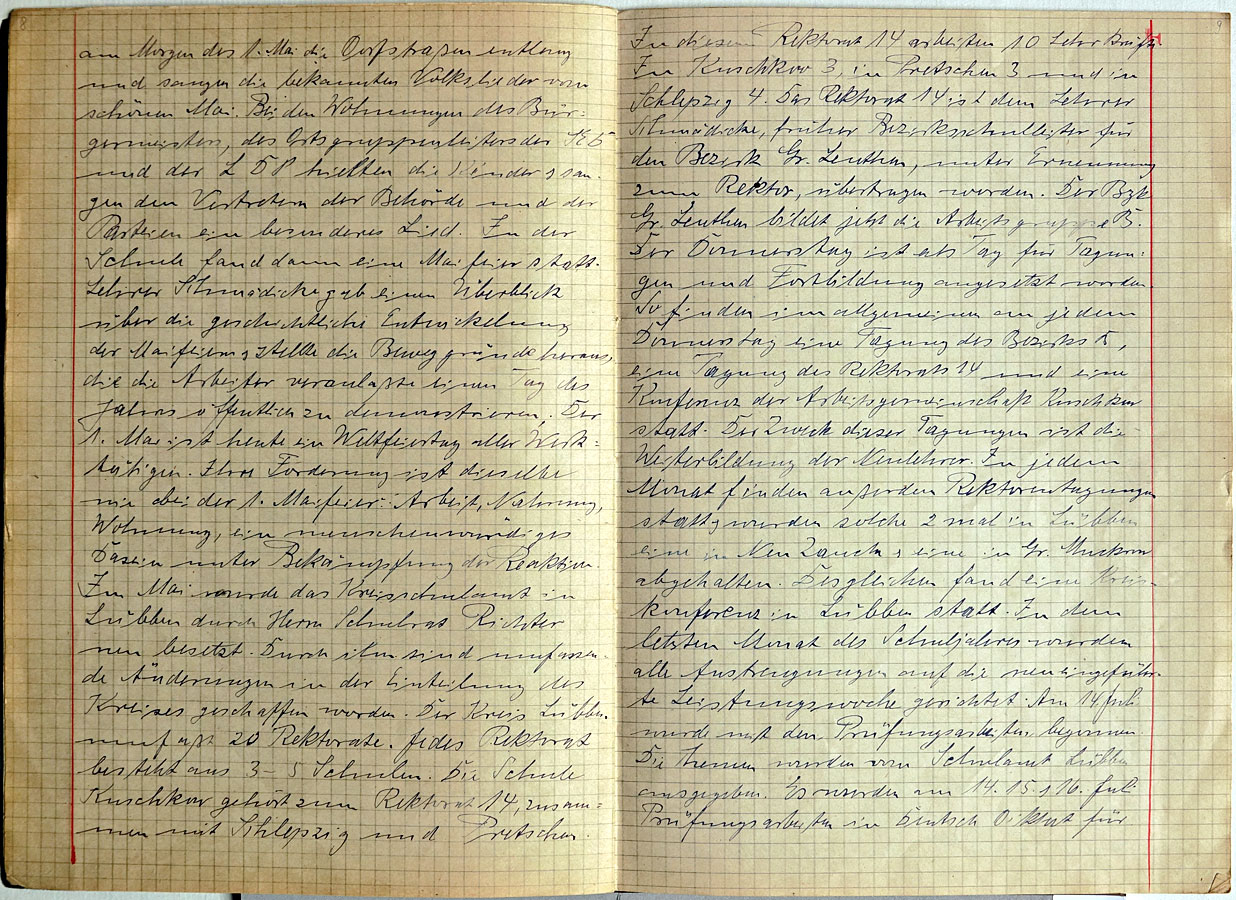 8
am Morgen des 1. Mai die Dorfstraßen entlang
und sangen die bekannten Volkslieder vom
schönen Mai. Bei den Wohnungen des Bür-
germeisters, des Ortsgruppenleiters der SED
und der LDP hielten die Kinder u. san-
gen den Vertretern der Behörde und der
Parteien ein besonderes Lied. In der
Schule fand dann eine Maifeier statt.
Lehrer Schmädicke gab einen Überblick
über die geschichtliche Entwickelung
der Maifeiern u. stellte die Beweggründe heraus,
die die Arbeiter veranlaßte einen Tag des
Jahres öffentlich zu demonstrieren. Der
1. Mai ist heute ein Weltfeiertag aller Werk-
tätigen. Ihre Forderung ist dieselbe
wie bei der 1. Maifeier: Arbeit, Nahrung,
Wohnung, ein menschenwürdiges
Dasein unter Bekämpfung der Reaktion
Im Mai wurde das Kreisschulamt in
Lübben durch Herrn Schulrat Richter
neu besetzt. Durch ihn sind umfassen-
de Änderungen in der Einteilung des
Kreises geschaffen worden. Der Kreis Lübben
umfaßt 20 Rektorate. Jedes Rektorat
besteht aus 3-5 Schulen. Die Schule
Kuschkow gehört zum Rektorat 14, zusam-
men mit Schlepzig und Pretschen.
9
In diesem Rektorat 14 arbeiten 10 Lehrkräfte
In Kuschkow 3, in Pretschen 3 und in
Schlepzig 4. Das Rektorat 14 ist dem Lehrer
Schmädicke, früher Bezirksschulleiter für
den Bezirk Gr. Leuthen, unter Ernennung
zum Rektor, übertragen worden. Der Bzk
Gr. Leuthen bildet jetzt die Arbeitsgruppe B.
Der Donnerstag ist als Tag für Tagun-
gen und Fortbildung angesetzt worden.
So finden im allgemeinen an jedem
Donnerstag eine Tagung des Bezirks B,
eine Tagung des Rektorats 14 und eine
Konferenz der Arbeitsgemeinschaft Kuschkow
statt. Der Zweck dieser Tagungen ist die
Weiterbildung der Neulehrer. In jedem
Monat finden außerdem Rektorentagungen
statt, wurden solche 2 mal in Lübben
eine in Neu Zauche u. eine in Gr. Muckrow
abgehalten. Desgleichen fand eine Kreis-
konferenz in Lübben statt. In dem
letzten Monat des Schuljahres wurden
alle Anstrengungen auf die neu eingeführ-
te Leistungswoche gerichtet. Am 14 Juli
wurde mit den Prüfungsarbeiten begonnen
Die Themen wurden vom Schulamt Lübben
ausgegeben. Es wurden am 14. 15. u. 16. Juli
Prüfungsarbeiten in Deutsch Diktat für